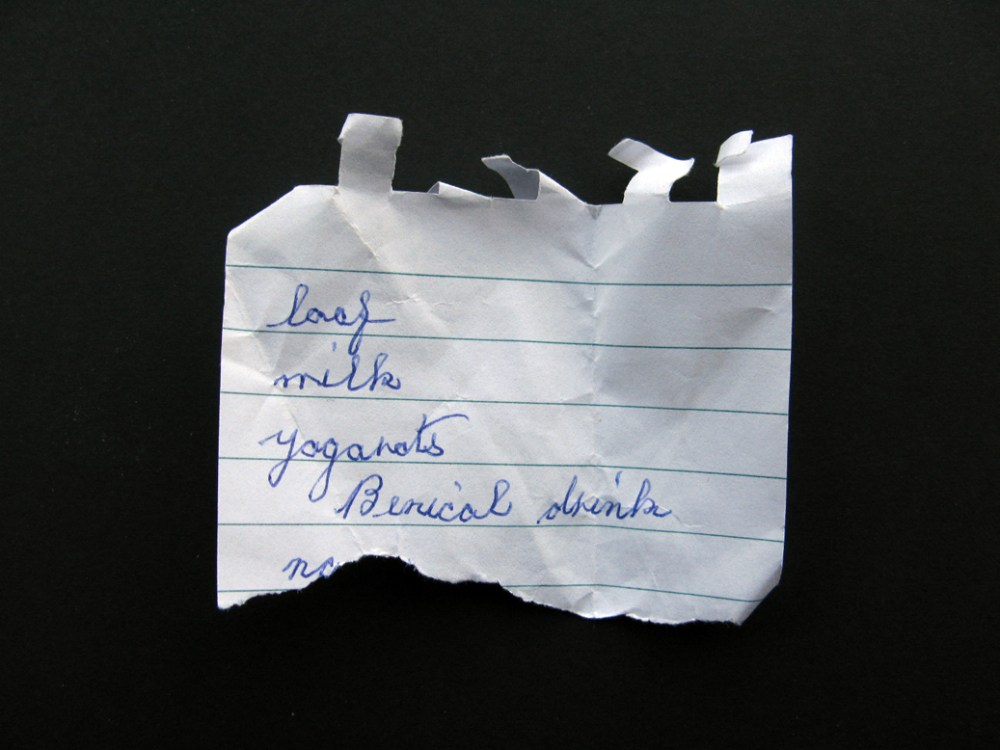 loaf
milk
yogarots
Benical drink